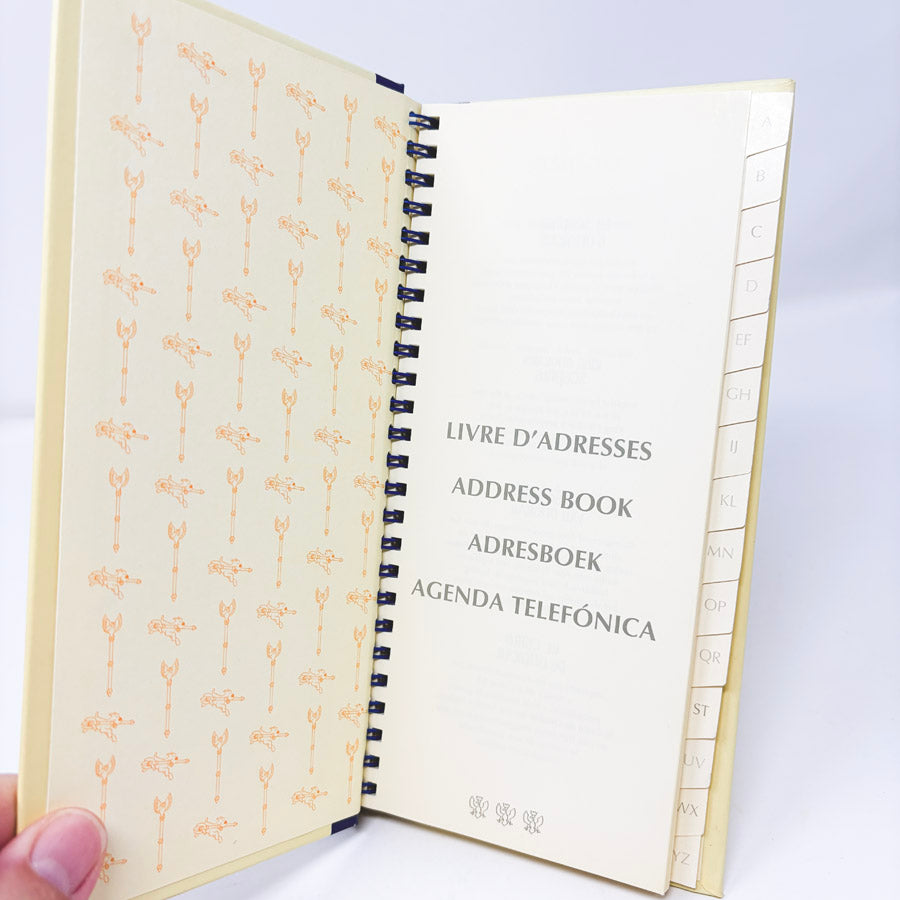 LIVRE D'ADRESSES
ADDRESS BOOK
ADRESBOEK
AGENDA TELEFÓNICA
A
B
C
D
EF
GH
IJ
KL
MN
OP
QR
ST
UV
WX
YZ